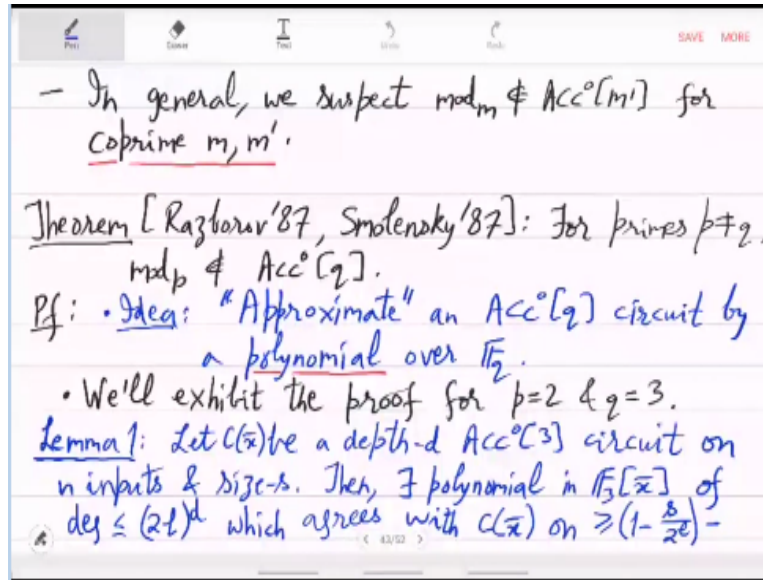 Pen Eraser Text Undo Redo SAVE MORE
- In general, we suspect mod_m ∉ Acc⁰[m'] for
coprime m, m'.
Theorem [Razborov'87, Smolensky'87]: For primes p≠q,
mod_p ∉ Acc⁰[q].
Pf: • Idea: "Approximate" an Acc⁰[q] circuit by
a polynomial over F_q.
• We'll exhibit the proof for p=2 & q=3.
Lemma 1: Let C(x̄) be a depth-d Acc⁰[3] circuit on
n inputs & size-s. Then, ∃ polynomial in F₃[x̄] of
deg ≤ (2l)^d which agrees with C(x̄) on ≥ (1 - s/2^l) -
< 43/52 >